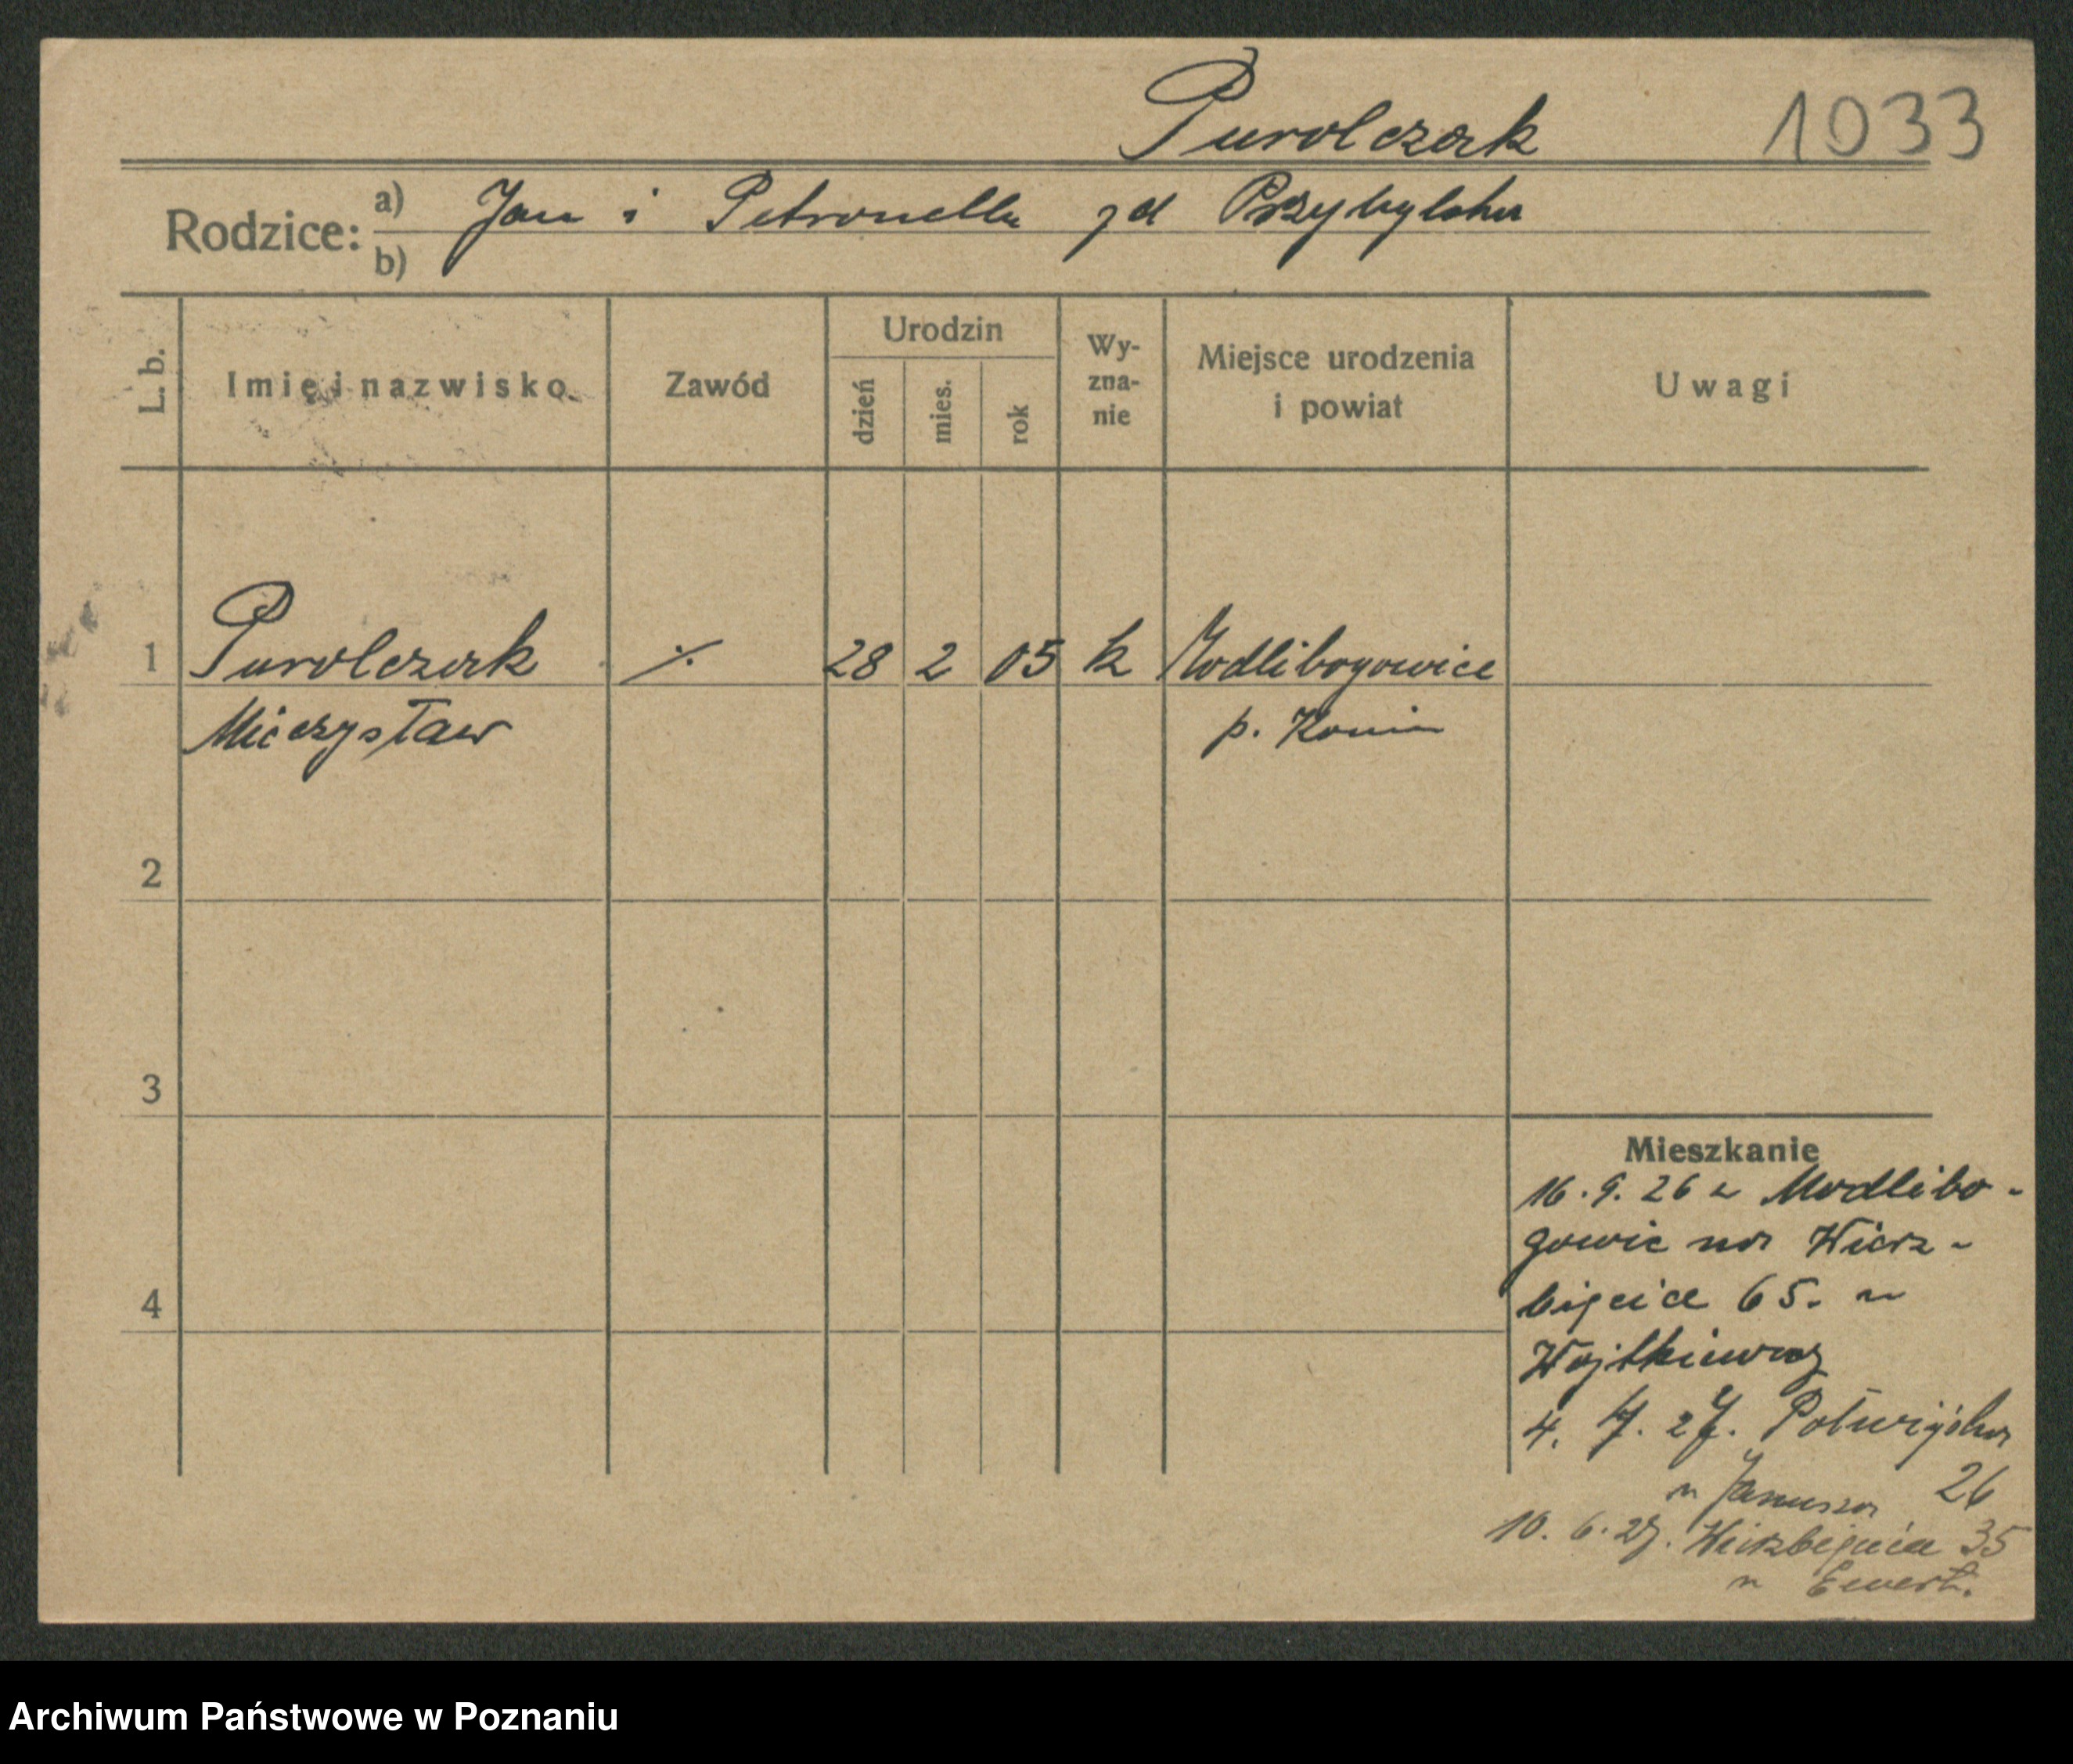 Purolczak 1033
Rodzice: a) Jan i Petronella zd Przybylska
b)
L. b. Imię i nazwisko Zawód Urodzin dzień mies. rok Wy-zna-nie Miejsce urodzenia i powiat Uwagi
1 Purolczak ·/. 28 2 05 k Modlibogowice
Mieczysław p. Konin
2
3
Mieszkanie
16.9.26 z Modlibo-
gowic na Wierz-
4 bięcice 65. u
Wojtkiewicz
4. 4. 27. Półwiejska
u Janusza 26
10. 6. 27. Wierzbięcice 35
u Ewert.
Archiwum Państwowe w Poznaniu